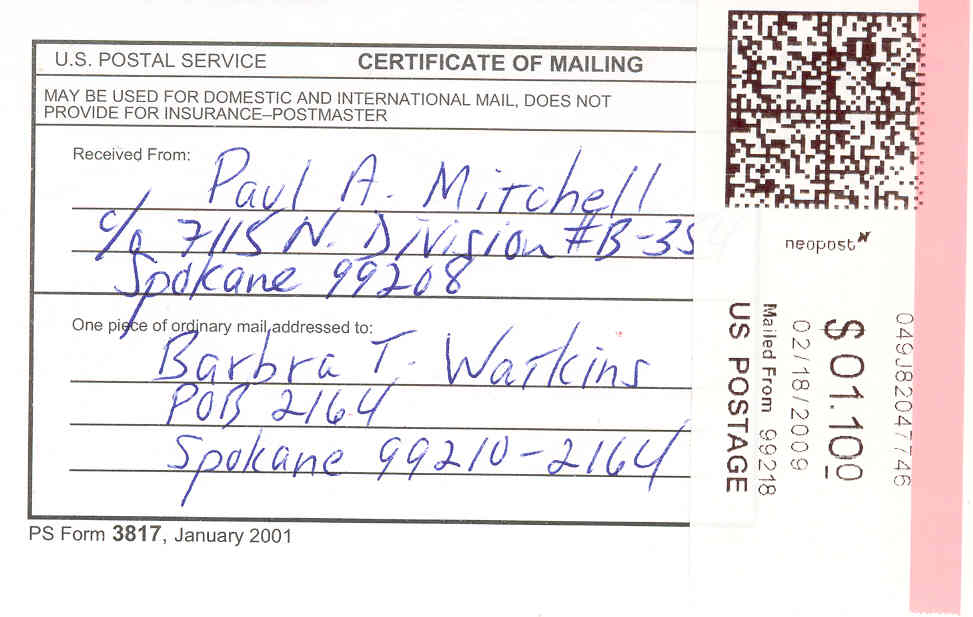 U.S. POSTAL SERVICE CERTIFICATE OF MAILING
MAY BE USED FOR DOMESTIC AND INTERNATIONAL MAIL, DOES NOT
PROVIDE FOR INSURANCE–POSTMASTER
Received From:
Paul A. Mitchell
c/o 7115 N. Division #B-354
Spokane 99208
One piece of ordinary mail addressed to:
Barbra T. Watkins
POB 2164
Spokane 99210-2164
PS Form 3817, January 2001
neopost
049J82047746
$01.100
02/18/2009
Mailed From 99218
US POSTAGE